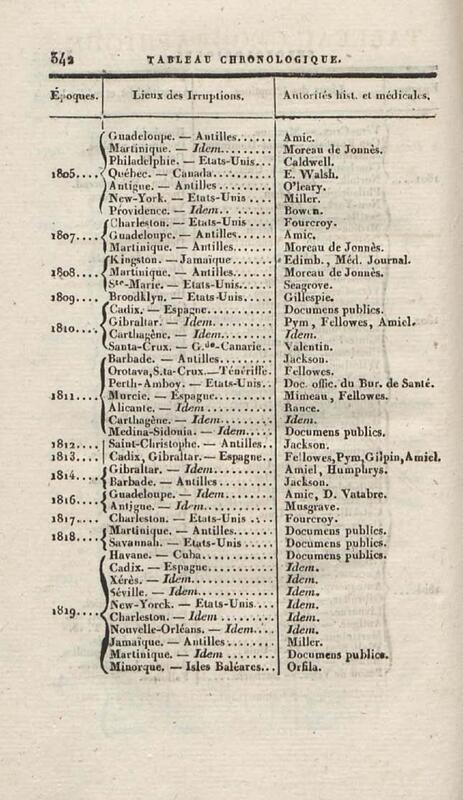 342 TABLEAU CHRONOLOGIQUE.
Époques. Lieux des Irruptions. Autorités hist. et médicales.
Guadeloupe. — Antilles...... Amic.
Martinique. — Idem........ Moreau de Jonnès.
Philadelphie. — Etats-Unis... Caldwell.
1805.... Québec. — Canada......... E. Walsh.
Antigue. — Antilles....... O'leary.
New-York. — Etats-Unis.... Miller.
Providence. — Idem....... Bowen.
Charleston. — Etats-Unis... Fourcroy.
1807.... Guadeloupe. — Antilles.... Amic.
Martinique. — Antilles..... Moreau de Jonnès.
Kingston. — Jamaïque..... Edimb., Méd. Journal.
1808.... Martinique. — Antilles..... Moreau de Jonnès.
Ste-Marie. — Etats-Unis.... Seagrove.
1809.... Broodklyn. — Etats-Unis... Gillespie.
Cadix. — Espagne......... Documens publics.
1810.... Gibraltar. — Idem........ Pym, Fellowes, Amiel.
Carthagène. — Idem....... Idem.
Santa-Crux. — G.de-Canarie.. Valentin.
Barbade. — Antilles....... Jackson.
Orotava, S.ta-Crux. — Ténériffe. Fellowes.
Perth-Amboy. — Etats-Unis.. Doc. offic. du Bur. de Santé.
1811.... Murcie. — Espagne....... Mimeau, Fellowes.
Alicante. — Idem......... Rance.
Carthagène. — Idem....... Idem.
Medina-Sidonia. — Idem.... Documens publics.
1812.... Saint-Christophe. — Antilles. Jackson.
1813.... Cadix, Gibraltar. — Espagne. Fellowes, Pym, Gilpin, Amiel.
1814.... Gibraltar. — Idem........ Amiel, Humphrys.
Barbade. — Antilles....... Jackson.
1816.... Guadeloupe. — Idem...... Amic, D. Vatabre.
Antigue. — Idem......... Musgrave.
1817.... Charleston. — Etats-Unis... Fourcroy.
1818.... Martinique. — Antilles..... Documens publics.
Savannah. — Etats-Unis.... Documens publics.
Havane. — Cuba......... Documens publics.
Cadix. — Espagne......... Idem.
Xérès. — Idem........... Idem.
Séville. — Idem.......... Idem.
New-Yorck. — Etats-Unis.... Idem.
1819.... Charleston. — Idem....... Idem.
Nouvelle-Orléans. — Idem... Idem.
Jamaïque. — Antilles...... Miller.
Martinique. — Idem....... Documens publics.
Minorque. — Isles Baléares... Orfila.